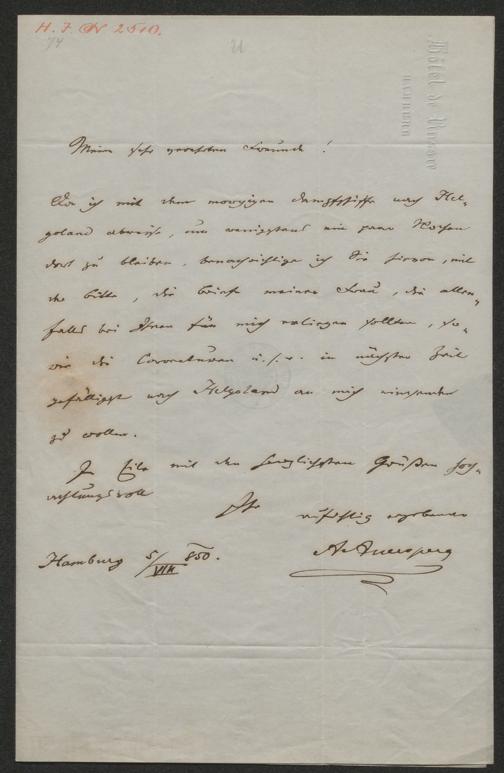 H. I. N. 2510.
74
Hôtel de Russie
HAMBURG
Meine sehr verehrten Freunde!
Da ich mit dem morgigen Dampfschiffe nach Hel-
goland abreise, um wenigstens ein paar Wochen
dort zu bleiben, benachrichtige ich Sie hievon, mit
der Bitte, die Briefe meiner Frau, die allen-
falls bei Ihnen für mich erliegen sollten, so-
wie die Correcturen u. s. w. in nächster Zeit
gefälligst nach Helgoland an mich einsenden
zu wollen.
In Eile mit den herzlichsten Grüßen hoch-
achtungsvoll
Ihr aufrichtig ergebener
AAuersperg
Hamburg 5/VIII 850.